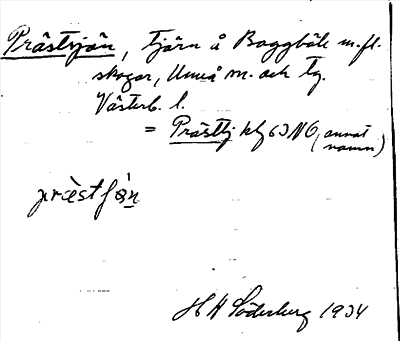 Prästsjön, tjärn å Baggböle m.fl.
skogar, Umeå m. och tg.
Västerb. l.
= Prästtj kbl 63 NO (annat
namn)
præstʃøn
H H Söderberg 1934